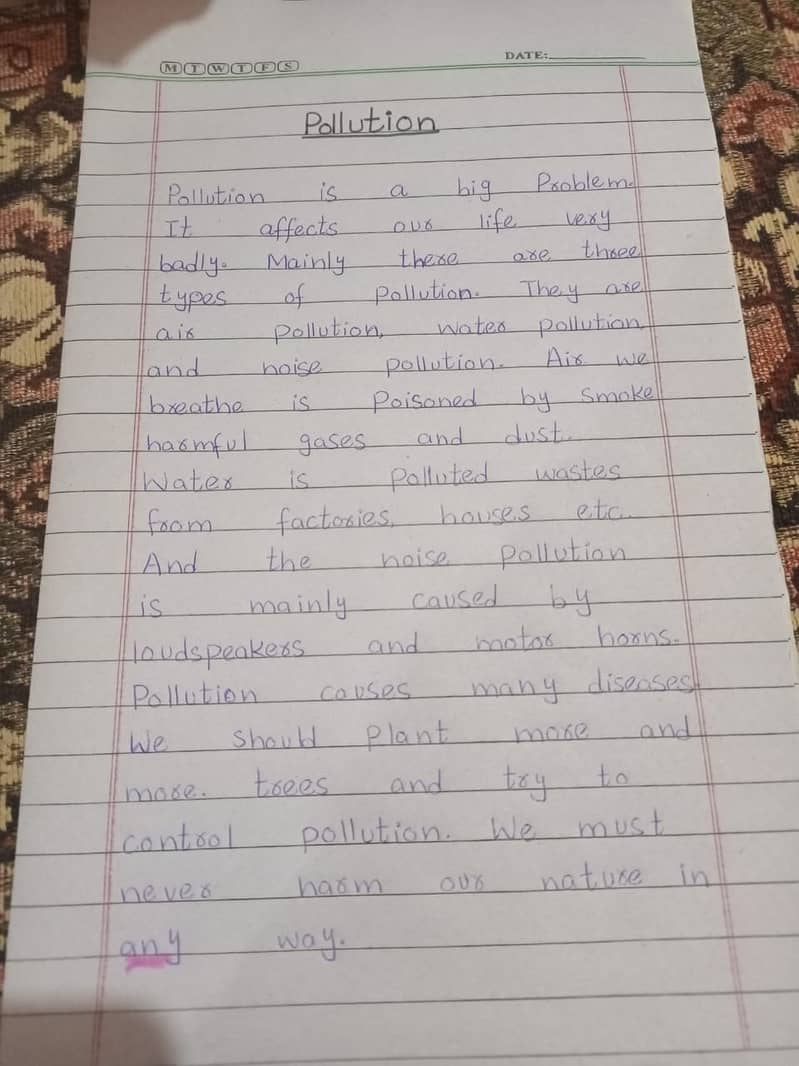 M T W T F S
DATE:
Pollution
Pollution is a big Problem.
It affects our life very
badly. Mainly there are three
types of pollution. They are
air pollution, water pollution
and noise pollution. Air we
breathe is Poisoned by smoke
harmful gases and dust.
Water is Polluted wastes
from factories, houses etc.
And the noise pollution
is mainly caused by
loudspeakers and motor horns.
Pollution causes many diseases
We should plant more and
more. trees and try to
control pollution. We must
never harm our nature in
any way.